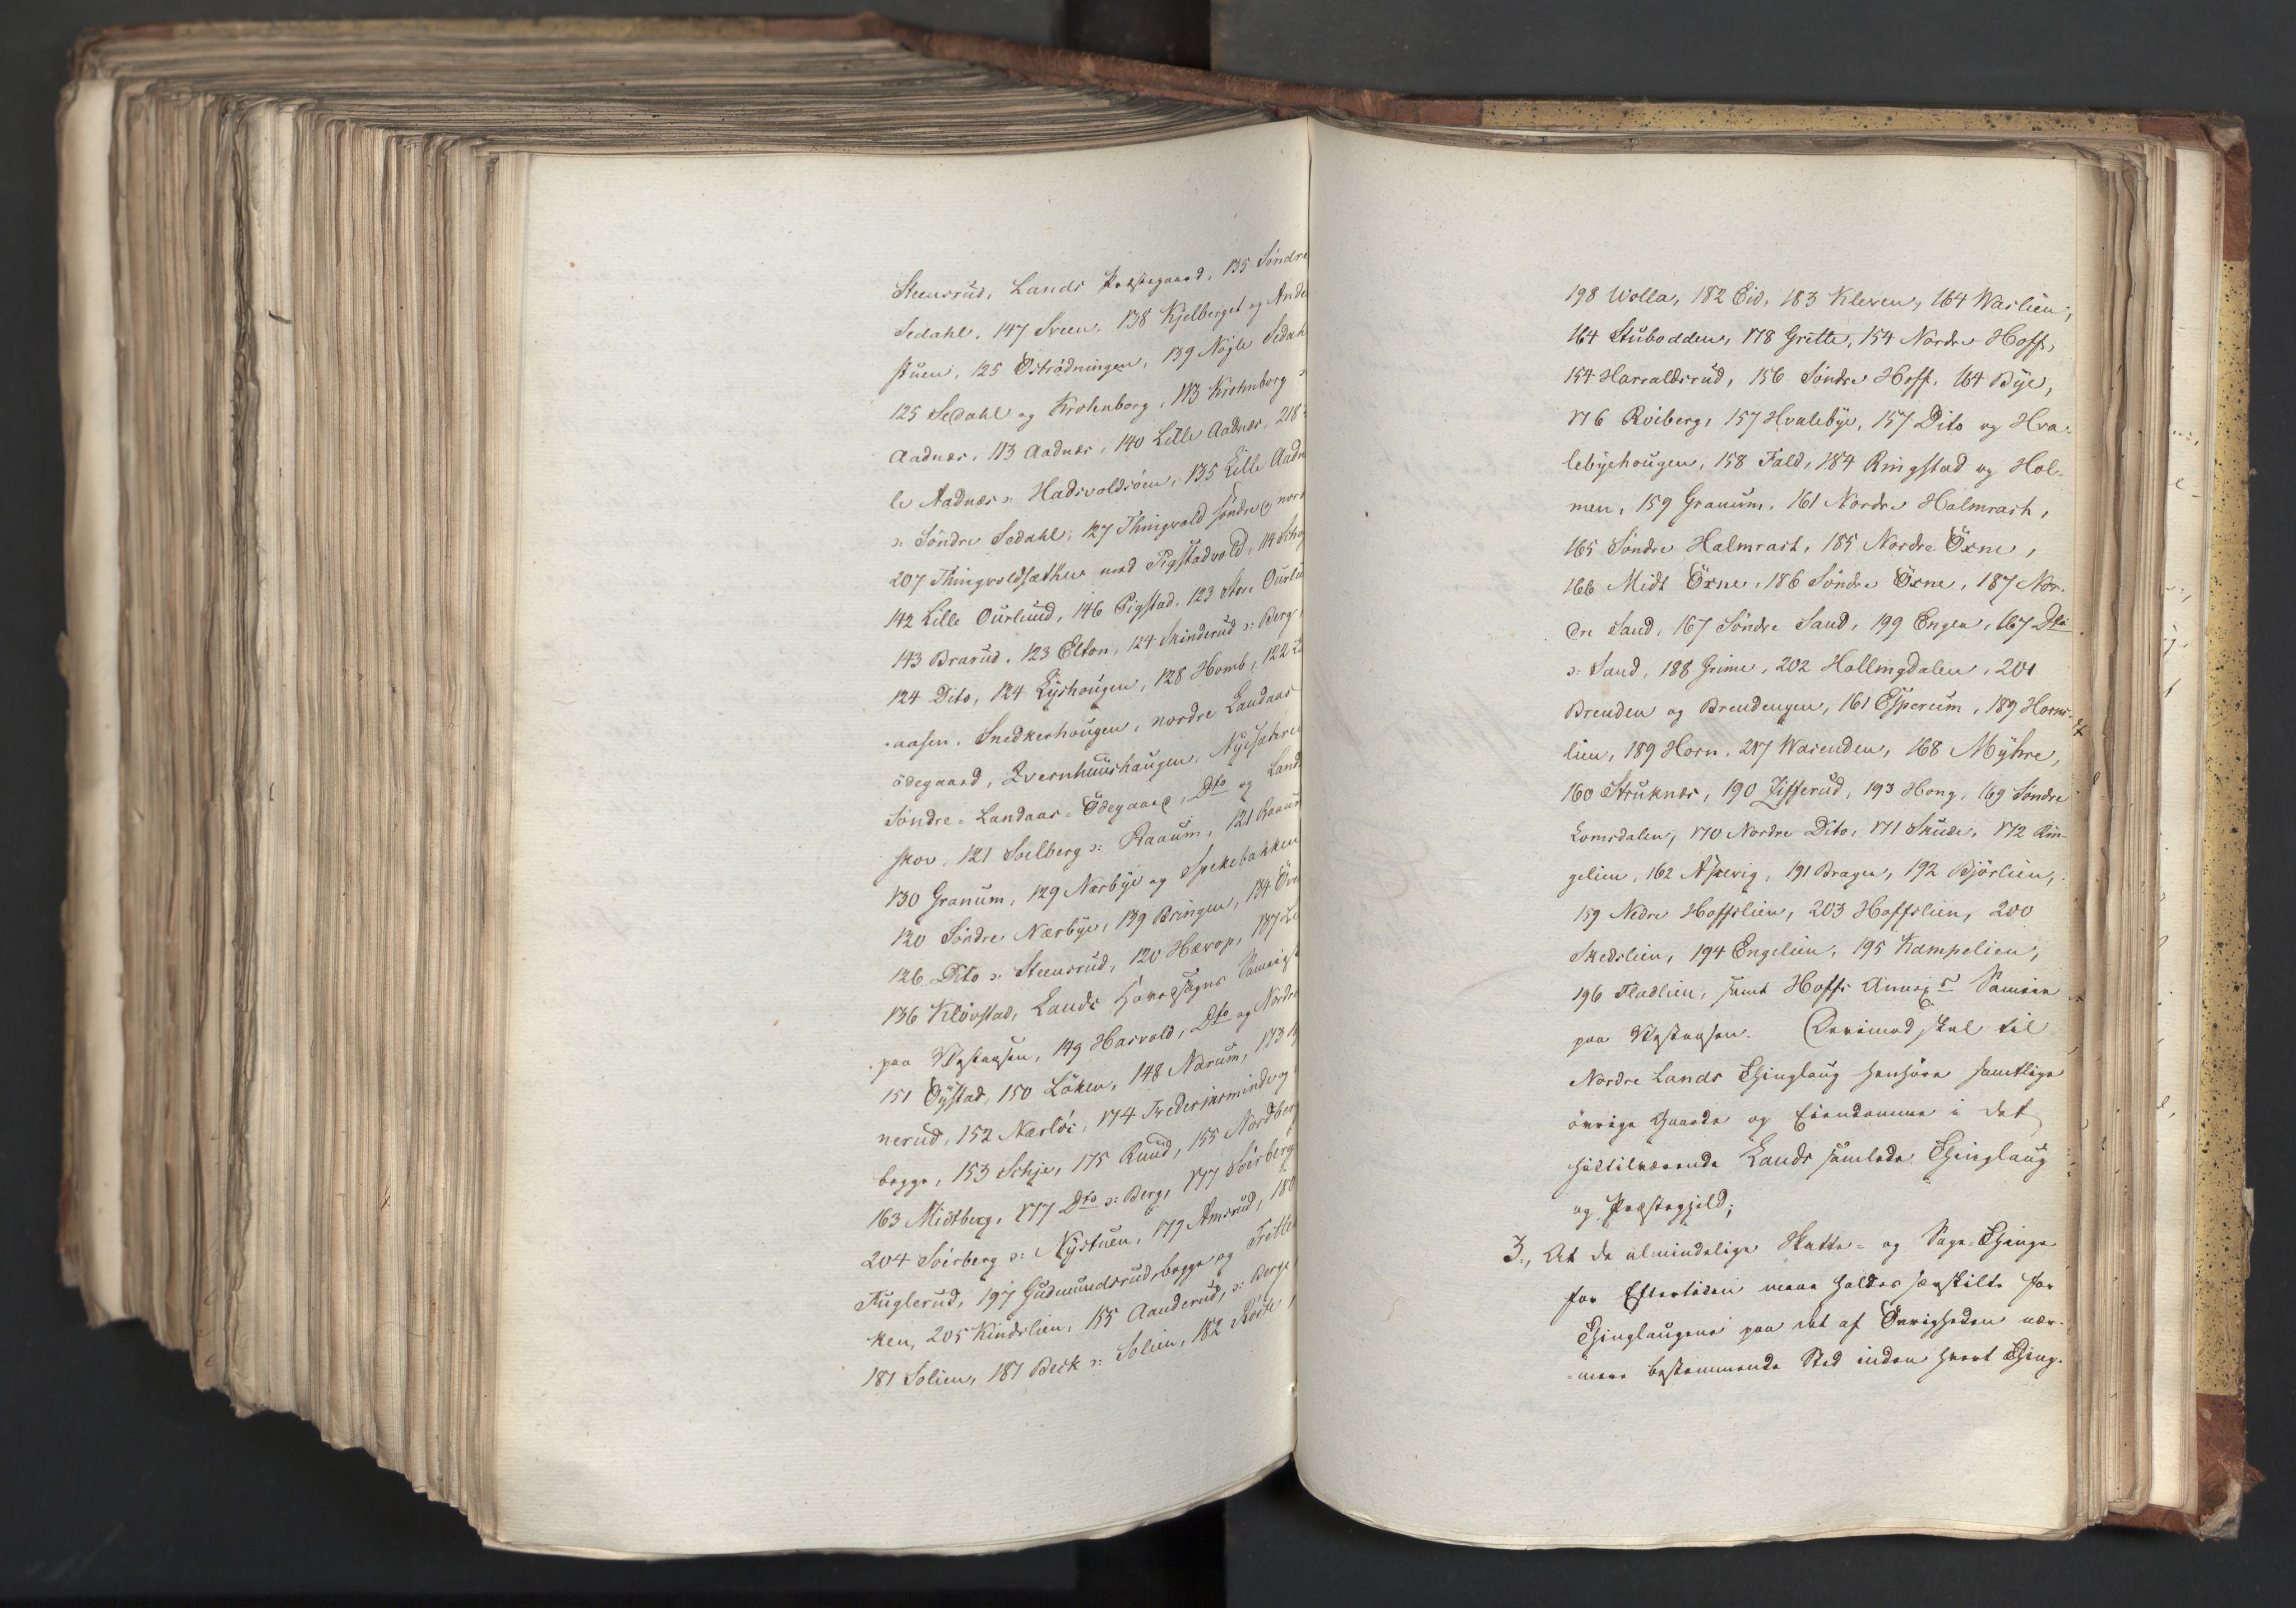 Steensrud, Lands Præstegaard, 135 Söndre
Sedahl, 147 Sveen, 138 Kjelberget og Ande
stuen, 125 Öströdningen, 139 Nøjle Sedah
125 Sedahl og Krohnborg, 113 Krohnborg
Aadnæs, 113 Aadnæs, 140 Lille Aadnæs, 218
le Aadnæs ɔ: Hadsvoldsöen, 135 Lille Aadn
ɔ: Söndre Sedahl, 127 Thingvold söndre og nord
207 Thingvoldsæther med Pigstadvold, 114
142 Lille Ourlund, 146 Pigstad, 123 Store Ourlu
143 Brarud, 123 Elton, 124 Skinderud ɔ: Berg,
124 Dito, 124 Lyshougen, 128 Homb, 122
aasen, Snedkerhougen, nordre Landaas
ödegaard, Qvernhuushaugen, Nyesæhre
Söndre=Landaas=Ödegaard, Dto og Land
skov, 121 Soelberg ɔ: Raaum, 121 Raau
130 Granum, 129 Nærbye og Spekebakken
120 Söndre Nærbye, 139 Bringen, 134 Öv
126 Dito ɔ: Steensrud, 120 Hævop, 137 L
136 Klövstad, Lands Hovedsogns Sameie
paa Vestaasen, 149 Hasvold, Dto og Nordre
151 Öystad, 150 Löken, 148 Narum, 173
nerud, 152 Nærlöi, 174 Frederiksminde og
bagge, 153 Schje, 175 Ruud, 155 Nordber
163 Midtberg, 177 Dto ɔ: Berg, 177 Soërberg
204 Soërberg ɔ: Nystuen, 179 Amsrud, 180
Fuglerud, 197 Gudmundsrudsbagge og Trette
ken, 205 Kindslien, 155 Aanderud, ɔ: Berge
181 Solien, 181 Beck ɔ: Solien, 182
198 Wolla, 182 Eid, 183 Kleven, 164 Waslien,
164 Stubodden, 178 Gritte, 154 Nordre Hoff,
154 Harraldsrud, 156 Söndre Hoff, 164 Bye,
176 Röiberg, 157 Hvalebye, 157 Dito og Hva-
lebyehougen, 158 Fald, 184 Ringstad og Hol-
men, 159 Granum, 161 Nordre Halmrast,
165 Söndre Halmrast, 185 Nordre Öxne,
166 Midt Öxne, 186 Söndre Öxne, 187 Nor-
dre Sand, 167 Söndre Sand, 199 Engen, 167 Dto
ɔ: Sand, 188 Grime, 202 Hallingdalen, 201
Brenden og Brendengen, 161 Esperum, 189 Horns-
lien, 189 Horn, 217 Warenden, 168 Myhre,
160 Struknæs, 190 Zifferud, 193 Hong, 169 Söndre
Lomsdalen, 170 Nordre Dito, 171 Skude, 172 Rin-
gelien, 162 Aspevig, 191 Bragen, 192 Björlien,
159 Nedre Hoffslien, 203 Hoffslien, 200
Skedslien, 194 Engelien, 195 Kampelien,
196 Fladlien, samt Hoffs Annexes Sameie
paa Vestaasen. Derimod skal til
Nordre Lands Thinglaug henhöre samtlige
övrige Gaarde og Eiendomme i det
hidtilværende Lands samlede Thinglaug
og Præstegjeld;
3, At de almindelige Skatte- og Sage-Thinge
for Eftertiden maae holdes særskilte for
Thinglaugene paa det af Övrigheden nær-
mere bestemmende Sted inden hvert Thing-